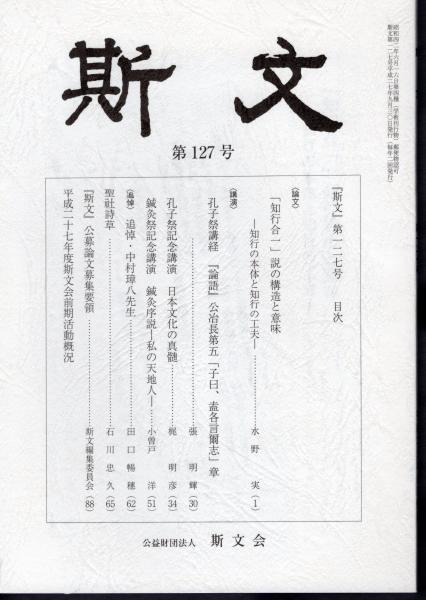 斯文
第127号
昭和四二年六月一六日第四種(学術刊行物)郵便物認可
斯文第一二七号平成二七年九月三〇日発行(毎年二回発行)
『斯文』第一二七号 目次
〈論文〉
「知行合一」説の構造と意味
―知行の本体と知行の工夫―……水野 実(1)
〈講演〉
孔子祭講経 『論語』公冶長第五「子曰、盍各言爾志」章
……張 明輝(30)
孔子祭記念講演 日本文化の真髄……梶 明彦(34)
鍼灸祭記念講演 鍼灸序説―私の天地人―……小曽戸 洋(51)
〈追悼〉追悼・中村璋八先生……田口暢穂(62)
聖社詩草……石川忠久(65)
『斯文』公募論文募集要領……斯文編集委員会(88)
平成二十七年度斯文会前期活動概況
公益財団法人 斯文会